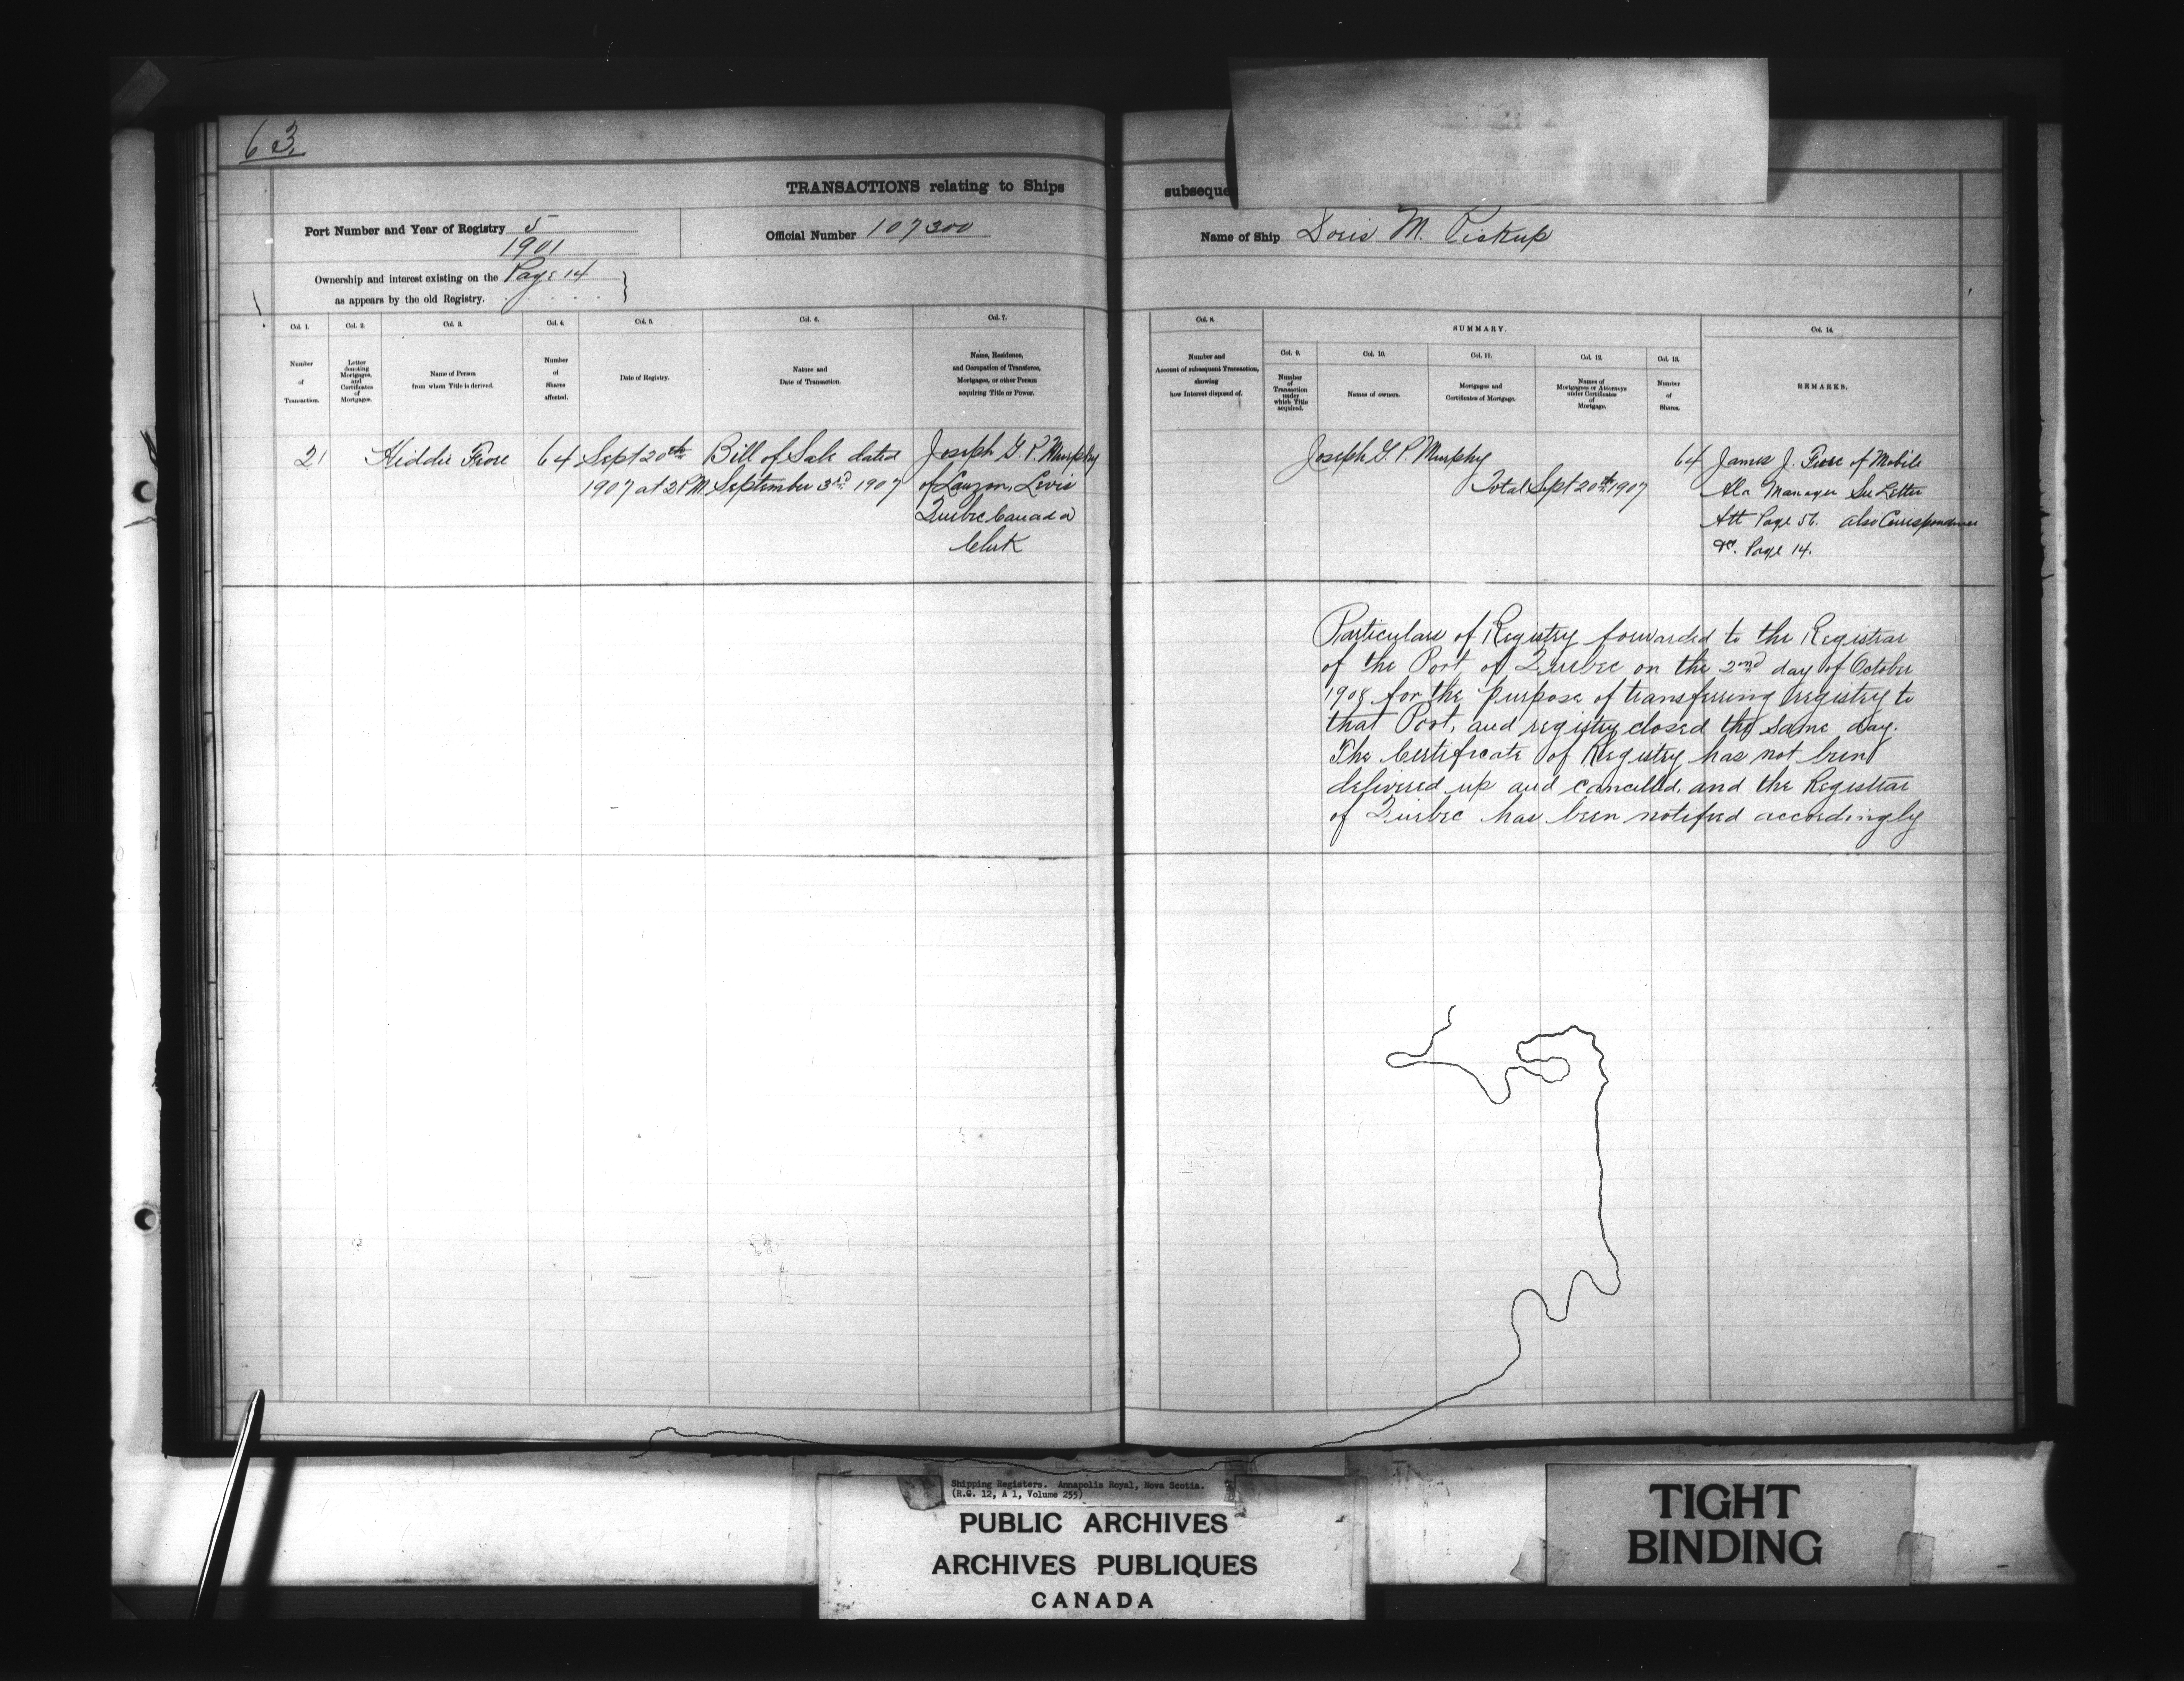 63
TRANSACTIONS relating to Ships
subseque
Port Number and Year of Registry 5
1901
Official Number 107300
Name of Ship Doris M. Pickup
Ownership and interest existing on the Page 14
as appears by the old Registry.
Col. 1.
Number
of
Transaction.
Col. 2.
Letter
denoting
Mortgages,
and
Certificates
of
Mortgages.
Col. 3.
Name of Person
from whom Title is derived.
Col. 4.
Number
of
Shares
affected.
Col. 5.
Date of Registry.
Col. 6.
Nature and
Date of Transaction.
Col. 7.
Name, Residence,
and Occupation of Transferee,
Mortgagee, or other Person
acquiring Title or Power.
Col. 8.
Number and
Account of subsequent Transaction,
showing
how Interest disposed of.
SUMMARY.
Col. 9.
Number
of
Transaction
under
which Title
acquired.
Col. 10.
Names of owners.
Col. 11.
Mortgages and
Certificates of Mortgage.
Col. 12.
Names of
Mortgagees or Attorneys
under Certificates
of
Mortgage.
Col. 13.
Number
of
Shares.
Col. 14.
REMARKS.
21
64
Sept 20th
1907 at 2 PM
Bill of Sale dated
September 3rd 1907
Joseph G. P. Murphy
of Lauzon, Levis
Quebec Canada
Clerk
Joseph G. P. Murphy
64
Total Sept 20th 1907
James J. of Mobile
Ala Manager See Letter
Att Page 51. also Correspondence
Page 14.
Particulars of Registry forwarded to the Registrar
of the Port of Quebec on the 2nd day of October
1908 for the purpose of transferring registry to
that Port, and registry closed the same day.
The Certificate of Registry has not been
delivered up and cancelled, and the Registrar
of Quebec has been notified accordingly
Shipping Registers. Annapolis Royal, Nova Scotia.
(R.G. 12, A 1, Volume 255)
PUBLIC ARCHIVES
ARCHIVES PUBLIQUES
CANADA
TIGHT
BINDING